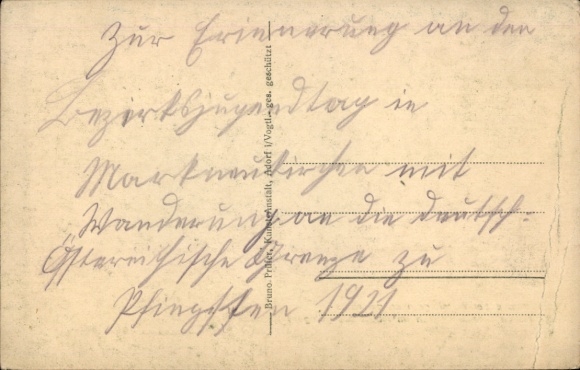 Zur Erinnerung an den
Bezirksjugendtag in
Markneukirchen mit
Wanderung an die deutsch-
Östereichische Grenze zu
Pfingsten 1921
Bruno Prüfer, Kunstanstalt, Adorf i/Vogtl. - ges. geschützt